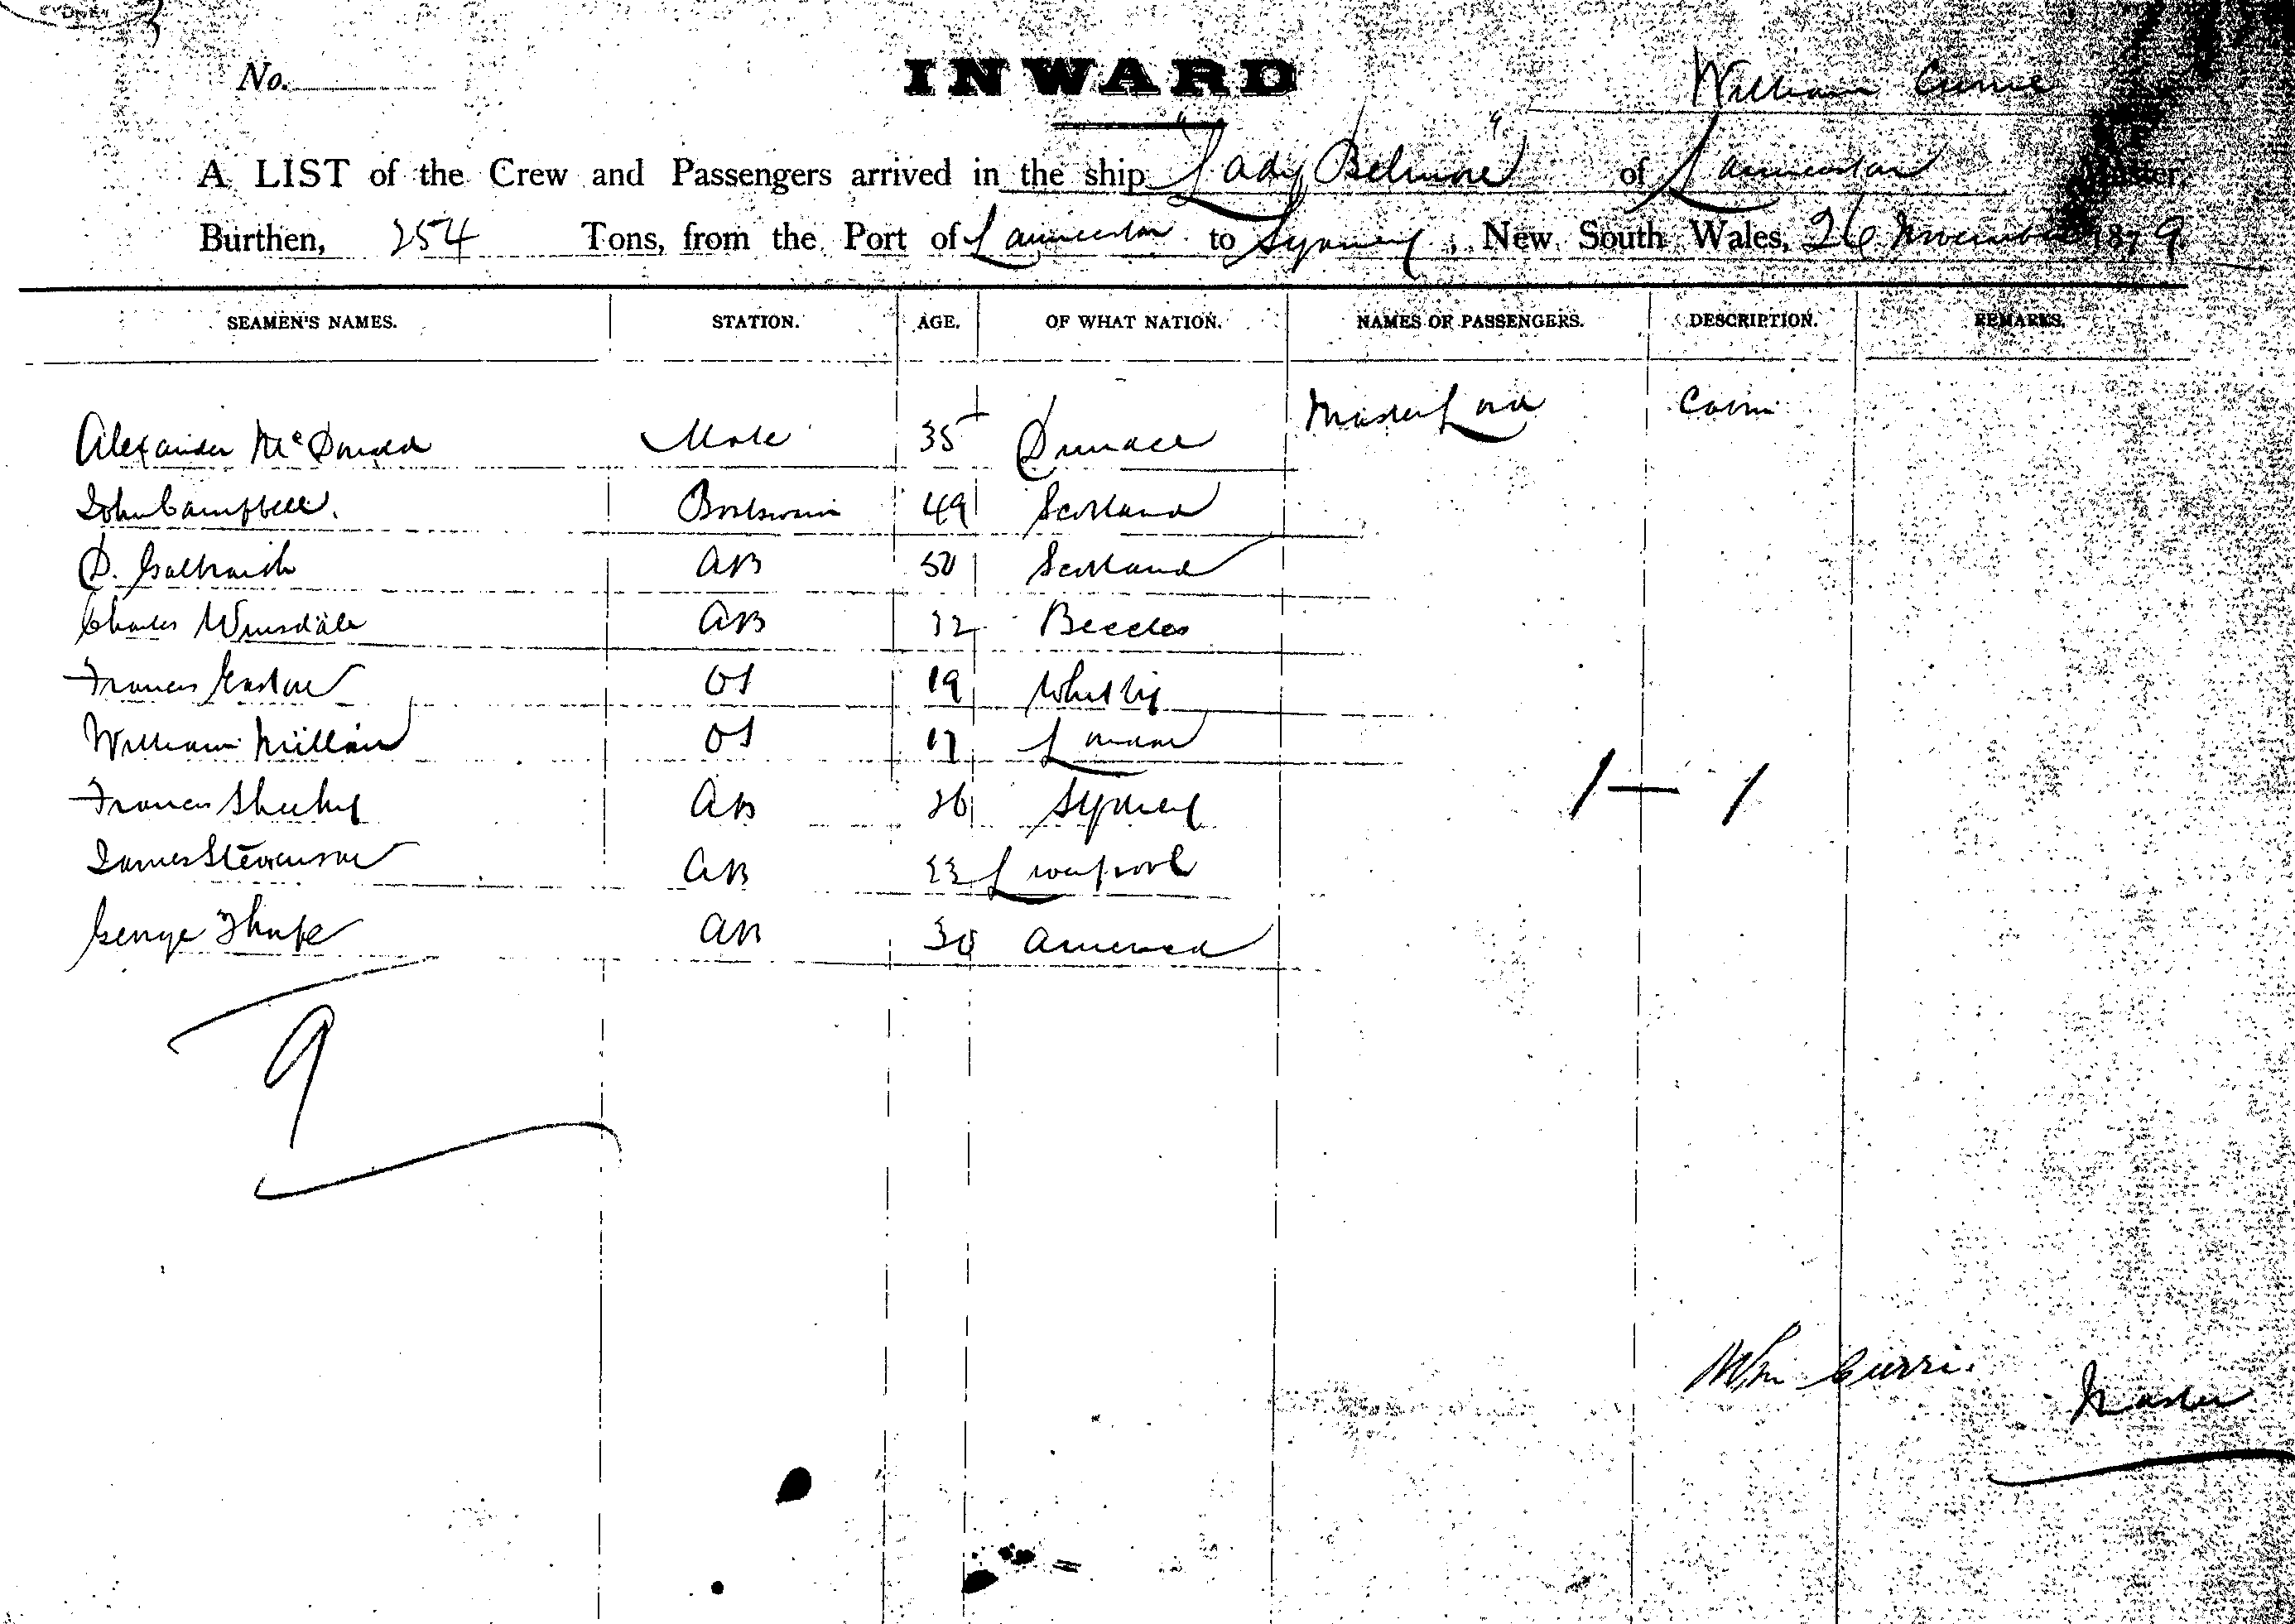 No.
INWARD
William Currie
A LIST of the Crew and Passengers arrived in the ship "Lady Belmore" of Launceston Master,
Burthen, 254 Tons, from the Port of Launceston to Sydney, New South Wales, 26 November 1879
SEAMEN'S NAMES. STATION. AGE. OF WHAT NATION. NAMES OF PASSENGERS. DESCRIPTION. REMARKS.
Alexander McDonald Mate 35 Master Cabin
John Campbell. Boatswain 49 Scotland
D. Galbraith AB 50 Scotland
Charles AB 32 Beccles
Francis OS 19 Whitby
William OS 17 London
Francis Sheehy AB 26 Sydney
James Stevenson AB Liverpool
George Thorpe AB America
1 — 1
9
Wm Currie.
Master